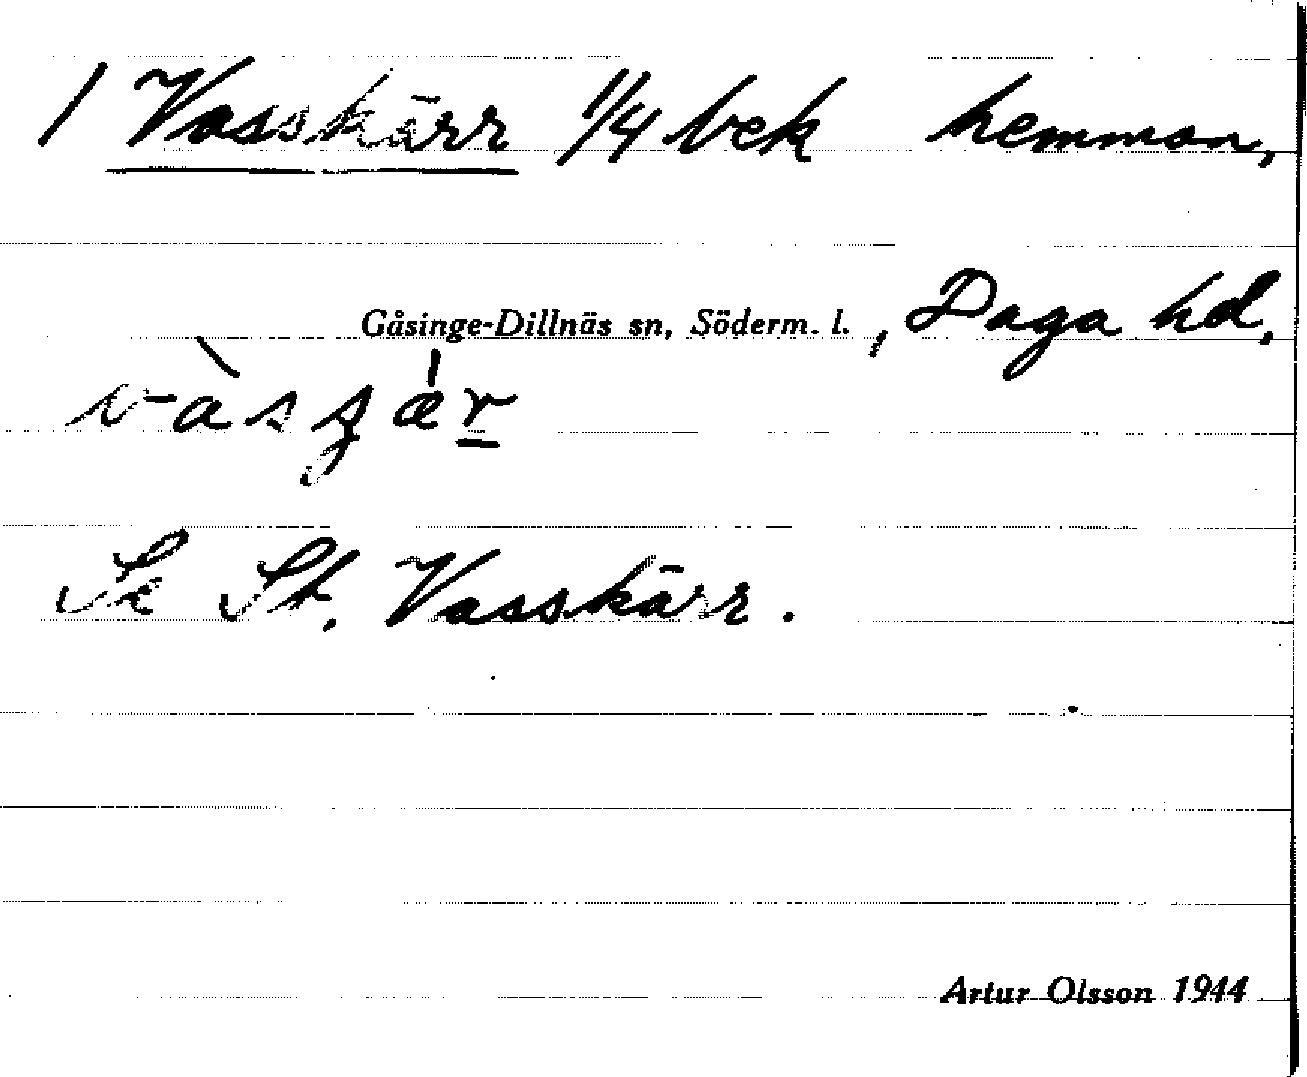 1 Vasskärr 1/4 bek hemman,
Gåsinge-Dillnäs sn, Söderm. l., Daga hd.
Se St. Vasskärr.
Artur Olsson 1944